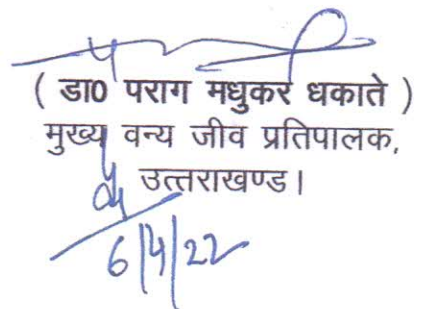 ( डा0 पराग मधुकर धकाते )
मुख्य वन्य जीव प्रतिपालक,
उत्तराखण्ड।
6/4/22